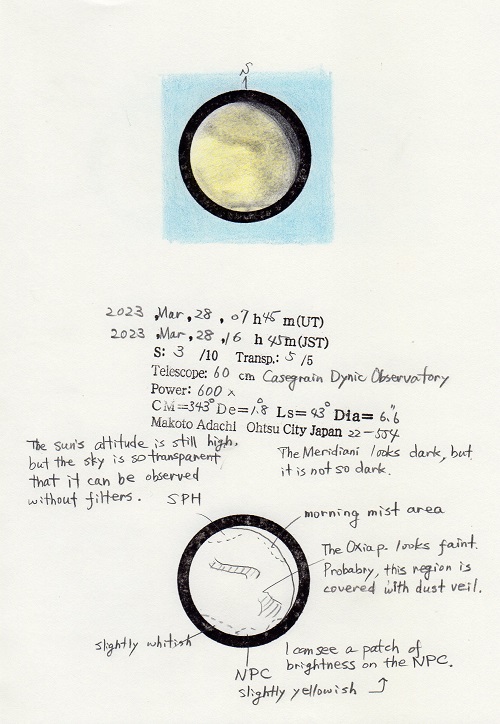 S
2023 ,Mar, 28 , 07 h 45 m (UT)
2023 ,Mar, 28 , 16 h 45m (JST)
S: 3 /10 Transp.: 5 /5
Telescope: 60 cm Casegrain Dynic Observatory
Power: 600 x
CM=343° De=1.°8 Ls=43° Dia= 6."6
Makoto Adachi Ohtsu City Japan 22-554
The sun's altitude is still high.
but the sky is so transparent
that it can be observed
without filters.
The Meridiani looks dark, but
it is not so dark.
SPH
morning mist area
The Oxia p. looks faint.
Probabry, this region is
covered with dust veil.
slightly whitish
NPC
slightly yellowish
I can see a patch of
brightness on the NPC.